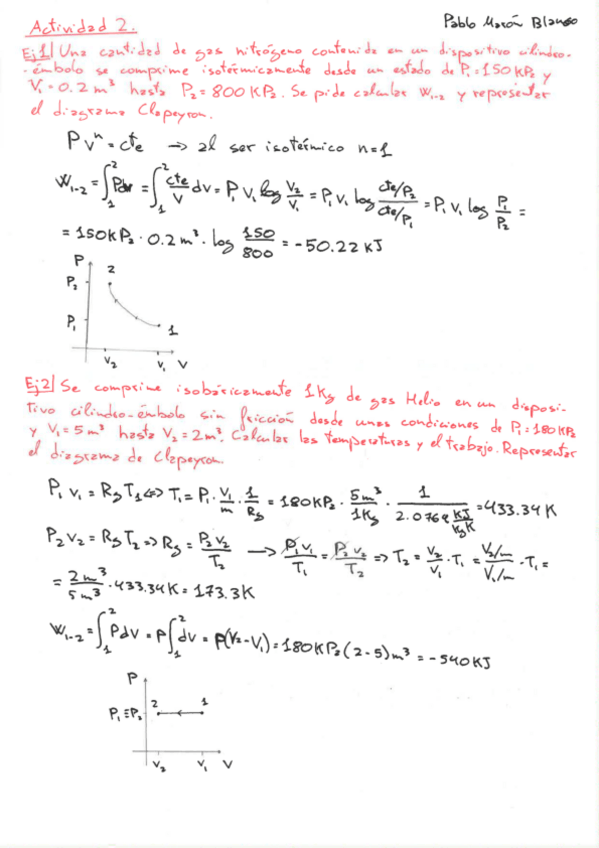 Actividad 2.
Pablo Marón Blanco
Ej1| Una cantidad de gas nitrógeno contenida en un dispositivo cilindro-
-émbolo se comprime isotérmicamente desde un estado de P₁=150KPa y
V₁=0.2 m³ hasta P₂=800 KPa. Se pide calcular W₁₋₂ y representar
el diagrama Clapeyron.
P Vⁿ = cte → al ser isotérmico n=1
W₁₋₂ = ∫₁² Pdv = ∫₁² cte/V dv = P₁ V₁ log V₂/V₁ = P₁ V₁ log (cte/P₂)/(cte/P₁) = P₁ V₁ log P₁/P₂ =
= 150KPa · 0.2 m³ · log 150/800 = -50.22 KJ
P
2
P₂
P₁
1
V₂ V₁ V
Ej2| Se comprime isobáricamente 1Kg de gas Helio en un disposi-
tivo cilindro-émbolo sin fricción desde unas condiciones de P₁=180KPa
y V₁=5m³ hasta V₂=2m³. Calcular las temperaturas y el trabajo. Representar
el diagrama de Clapeyron.
P₁ V₁ = Rg T₁ ⇔ T₁ = P₁ · V₁/m · 1/Rg = 180KPa · 5m³/1Kg · 1/(2.0769 KJ/KgK) = 433.34 K
P₂ V₂ = Rg T₂ ⇒ Rg = P₂ V₂/T₂ → P₁ V₁/T₁ = P₂ V₂/T₂ ⇒ T₂ = V₂/V₁ · T₁ = (V₂/m)/(V₁/m) · T₁ =
= 2m³/5m³ · 433.34K = 173.3K
W₁₋₂ = ∫₁² Pdv = P∫₁² dv = P(V₂-V₁) = 180KPa (2-5)m³ = -540KJ
P
P₁≡P₂ 2 1
V₂ V₁ V